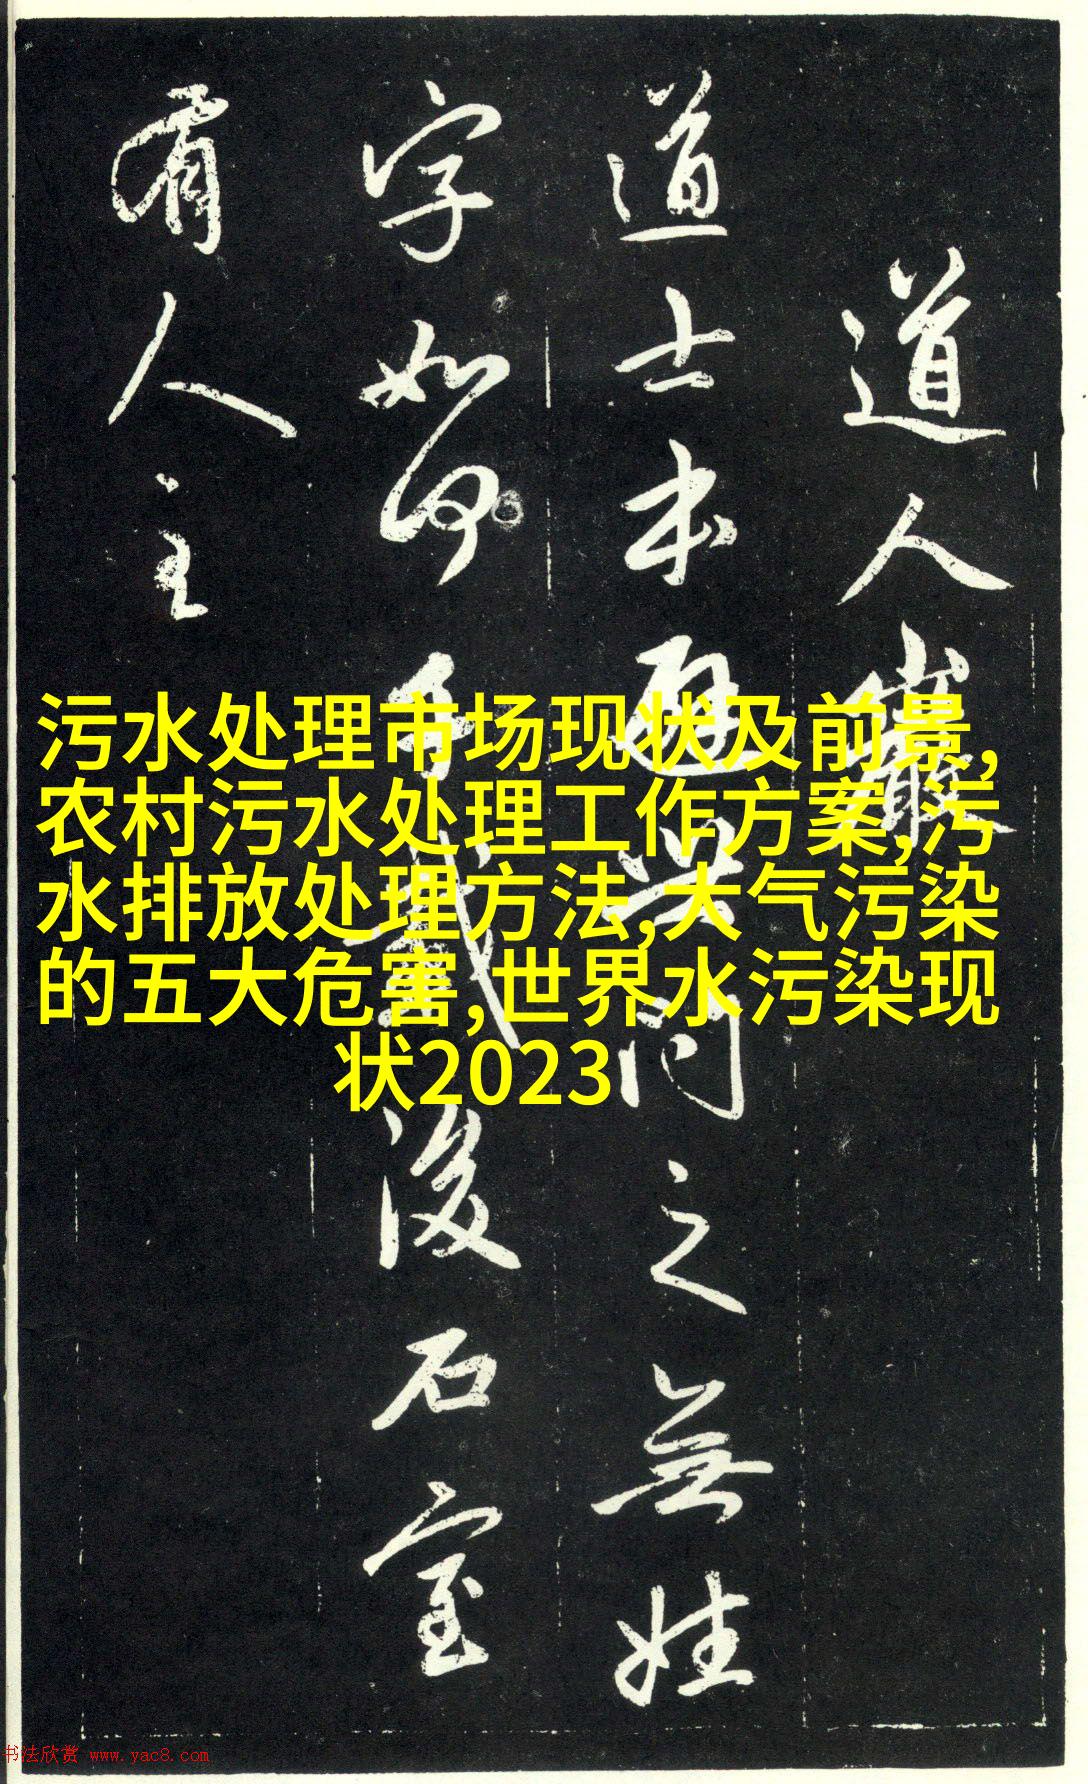 道人巖
道士本避世問之無姓
字如何千載後石室
有人至
污水处理市场现状及前景,
农村污水处理工作方案,污
水排放处理方法,大气污染
的五大危害,世界水污染现
状2023
书法欣赏 www.yac8.com